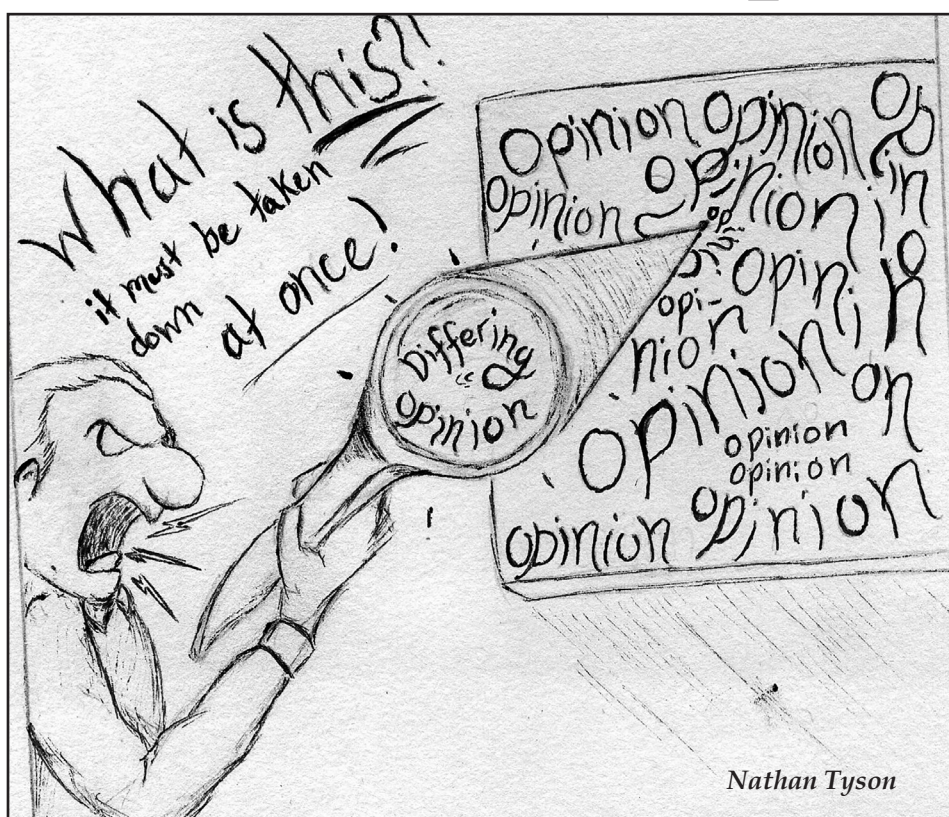 What is this?!
it must be taken
down
at once!
Differing
Opinion
Opinion Opinion Op
Opinion Opinion in
op
Opin
opi-
nion
Opinion in
on
opinion
opinion
opinion Opinion
Nathan Tyson